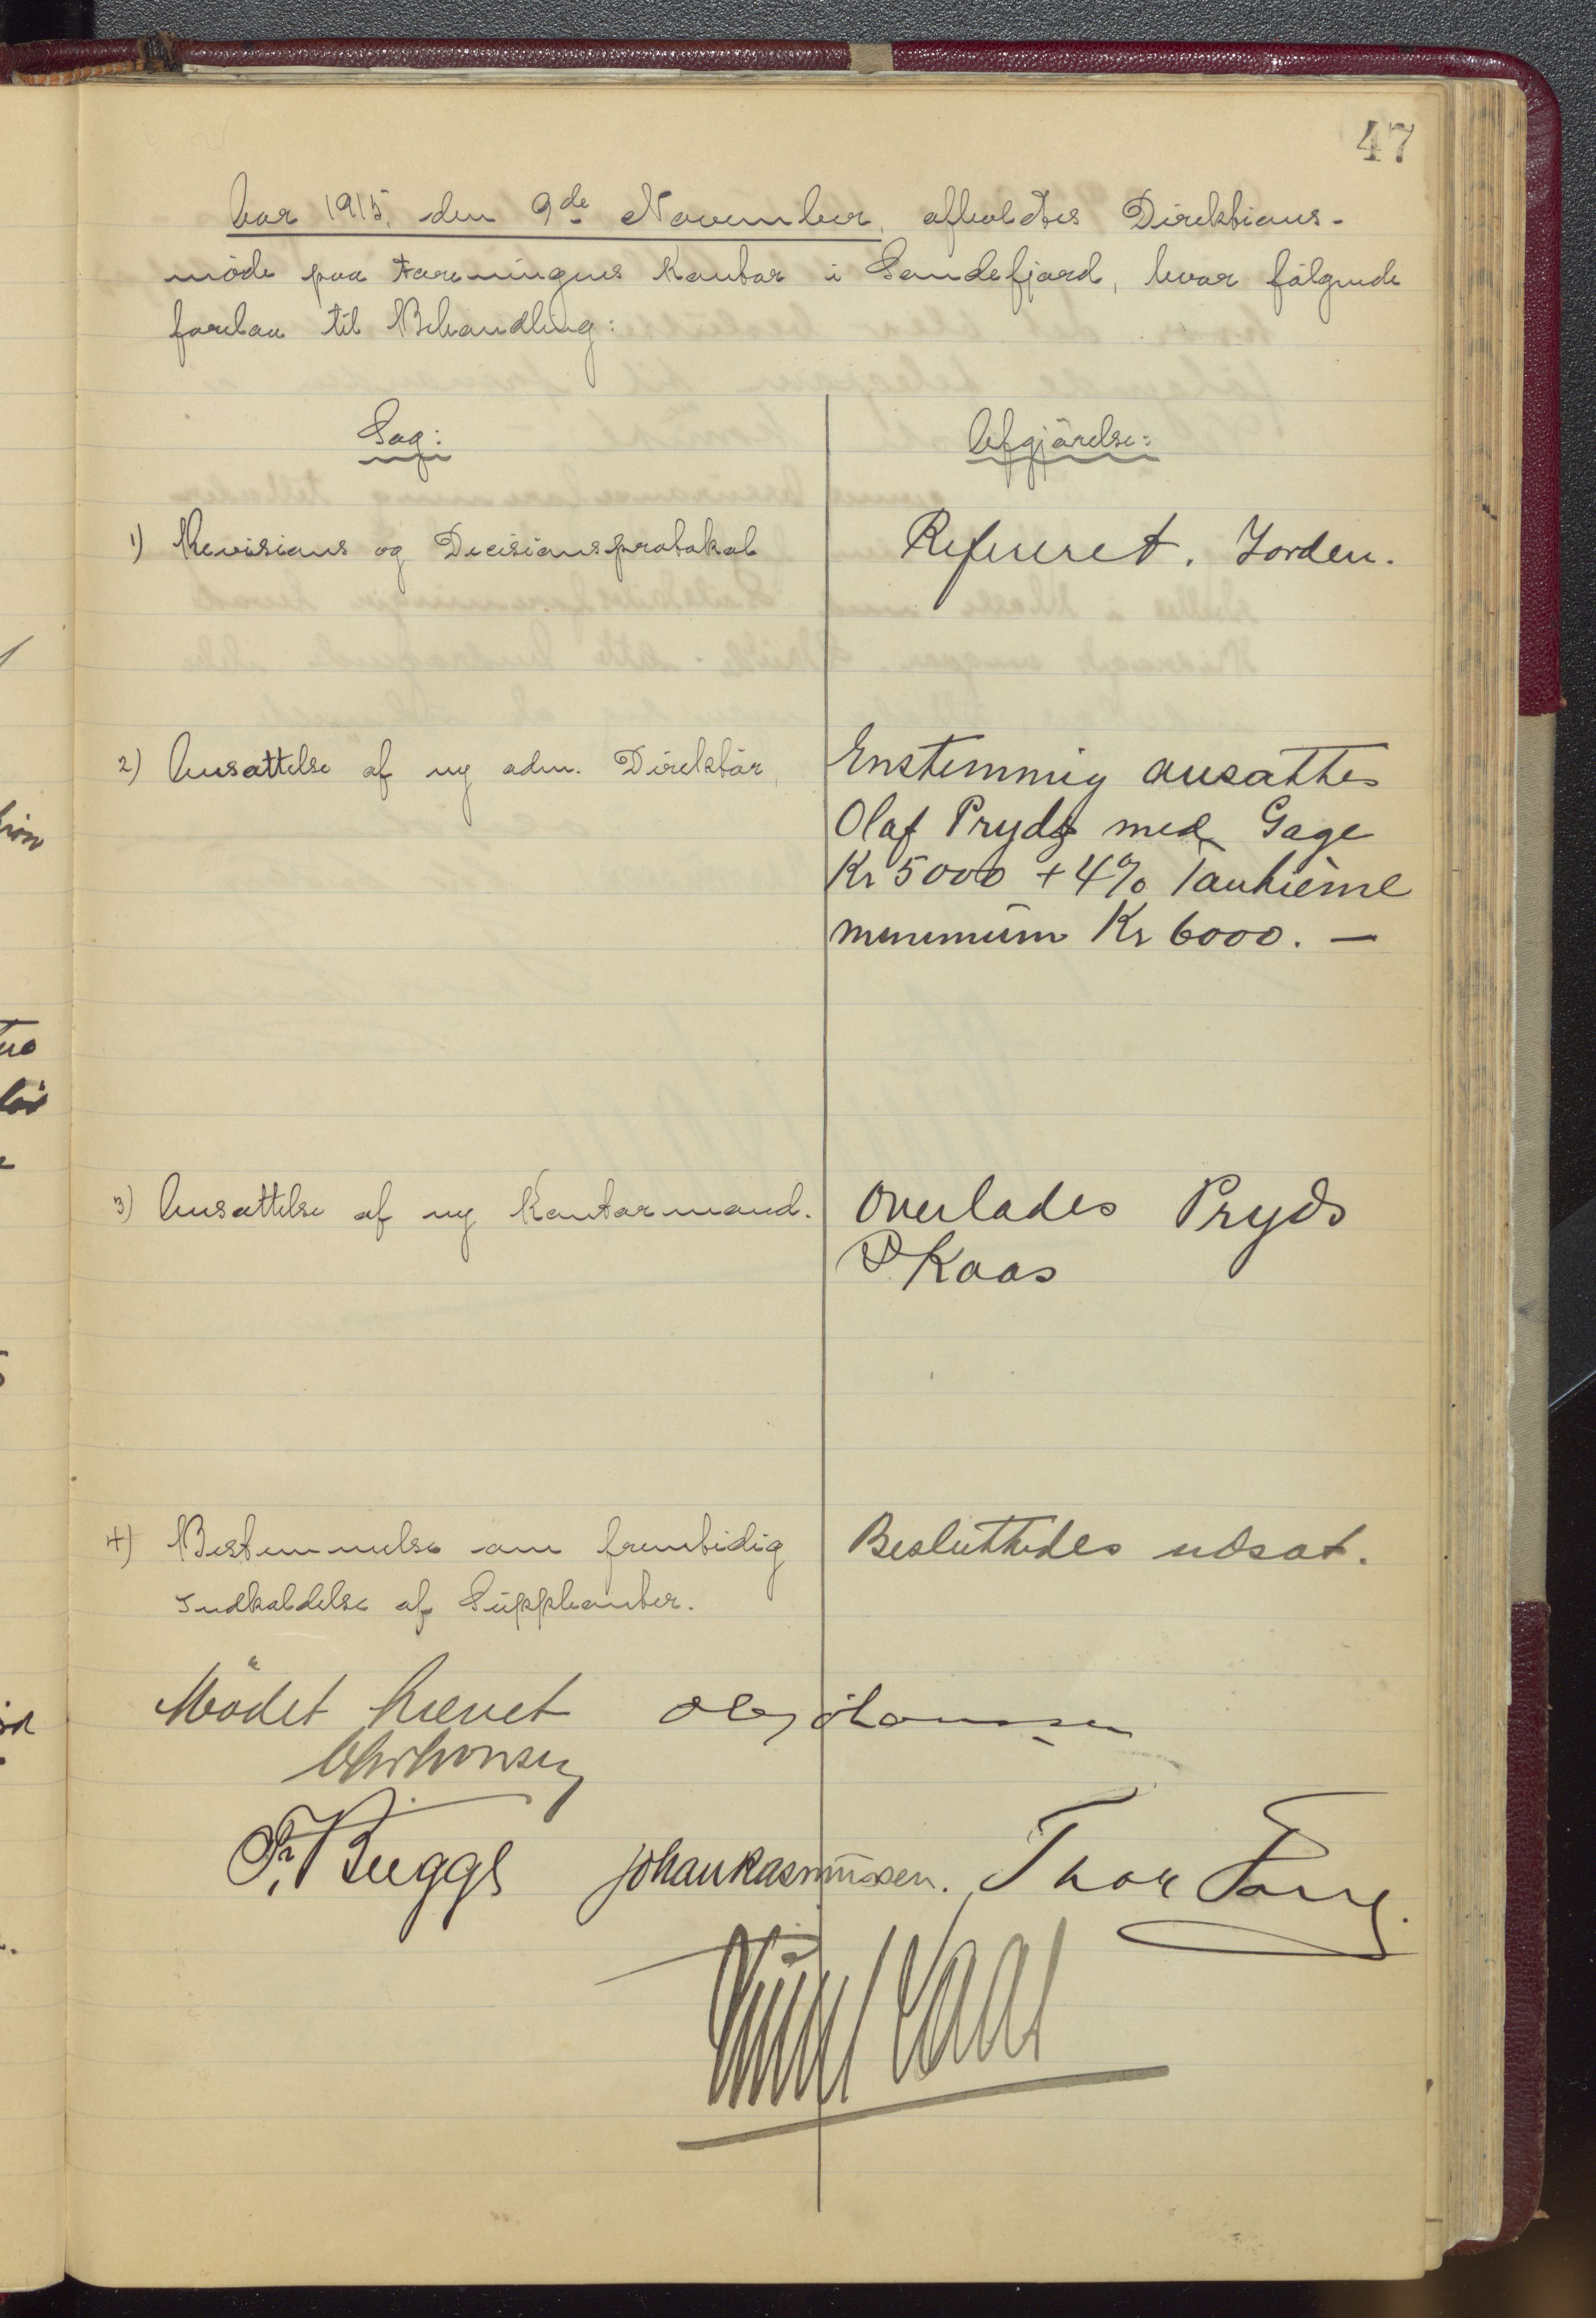 47
Aar 1915, den 9de November, afholdtes Direktions-
møde paa Foreningens Kontor i Sandefjord, hvor følgende
forelaa til Behandling:
Sag:
Afgjørelse:
1) Revisions og Decisionsprotokol
Refereret. Jorden.
2) Ansættelse af ny adm. Direktør,
Enstemmig ansattes
Olaf Pryds med Gage
Kr 5000 + 4% Tantième
minimum Kr 6000. —
3) Ansættelse af ny Kontormand.
Overlades Pryds
& Kaas
4) Bestemmelse om fremtidig
Indkaldelse af Suppleanter.
Besluttedes udsat.
Mødet hævet
Chr Hansen
Fr. Bugge Johan Rasmussen. Thor
Kaas